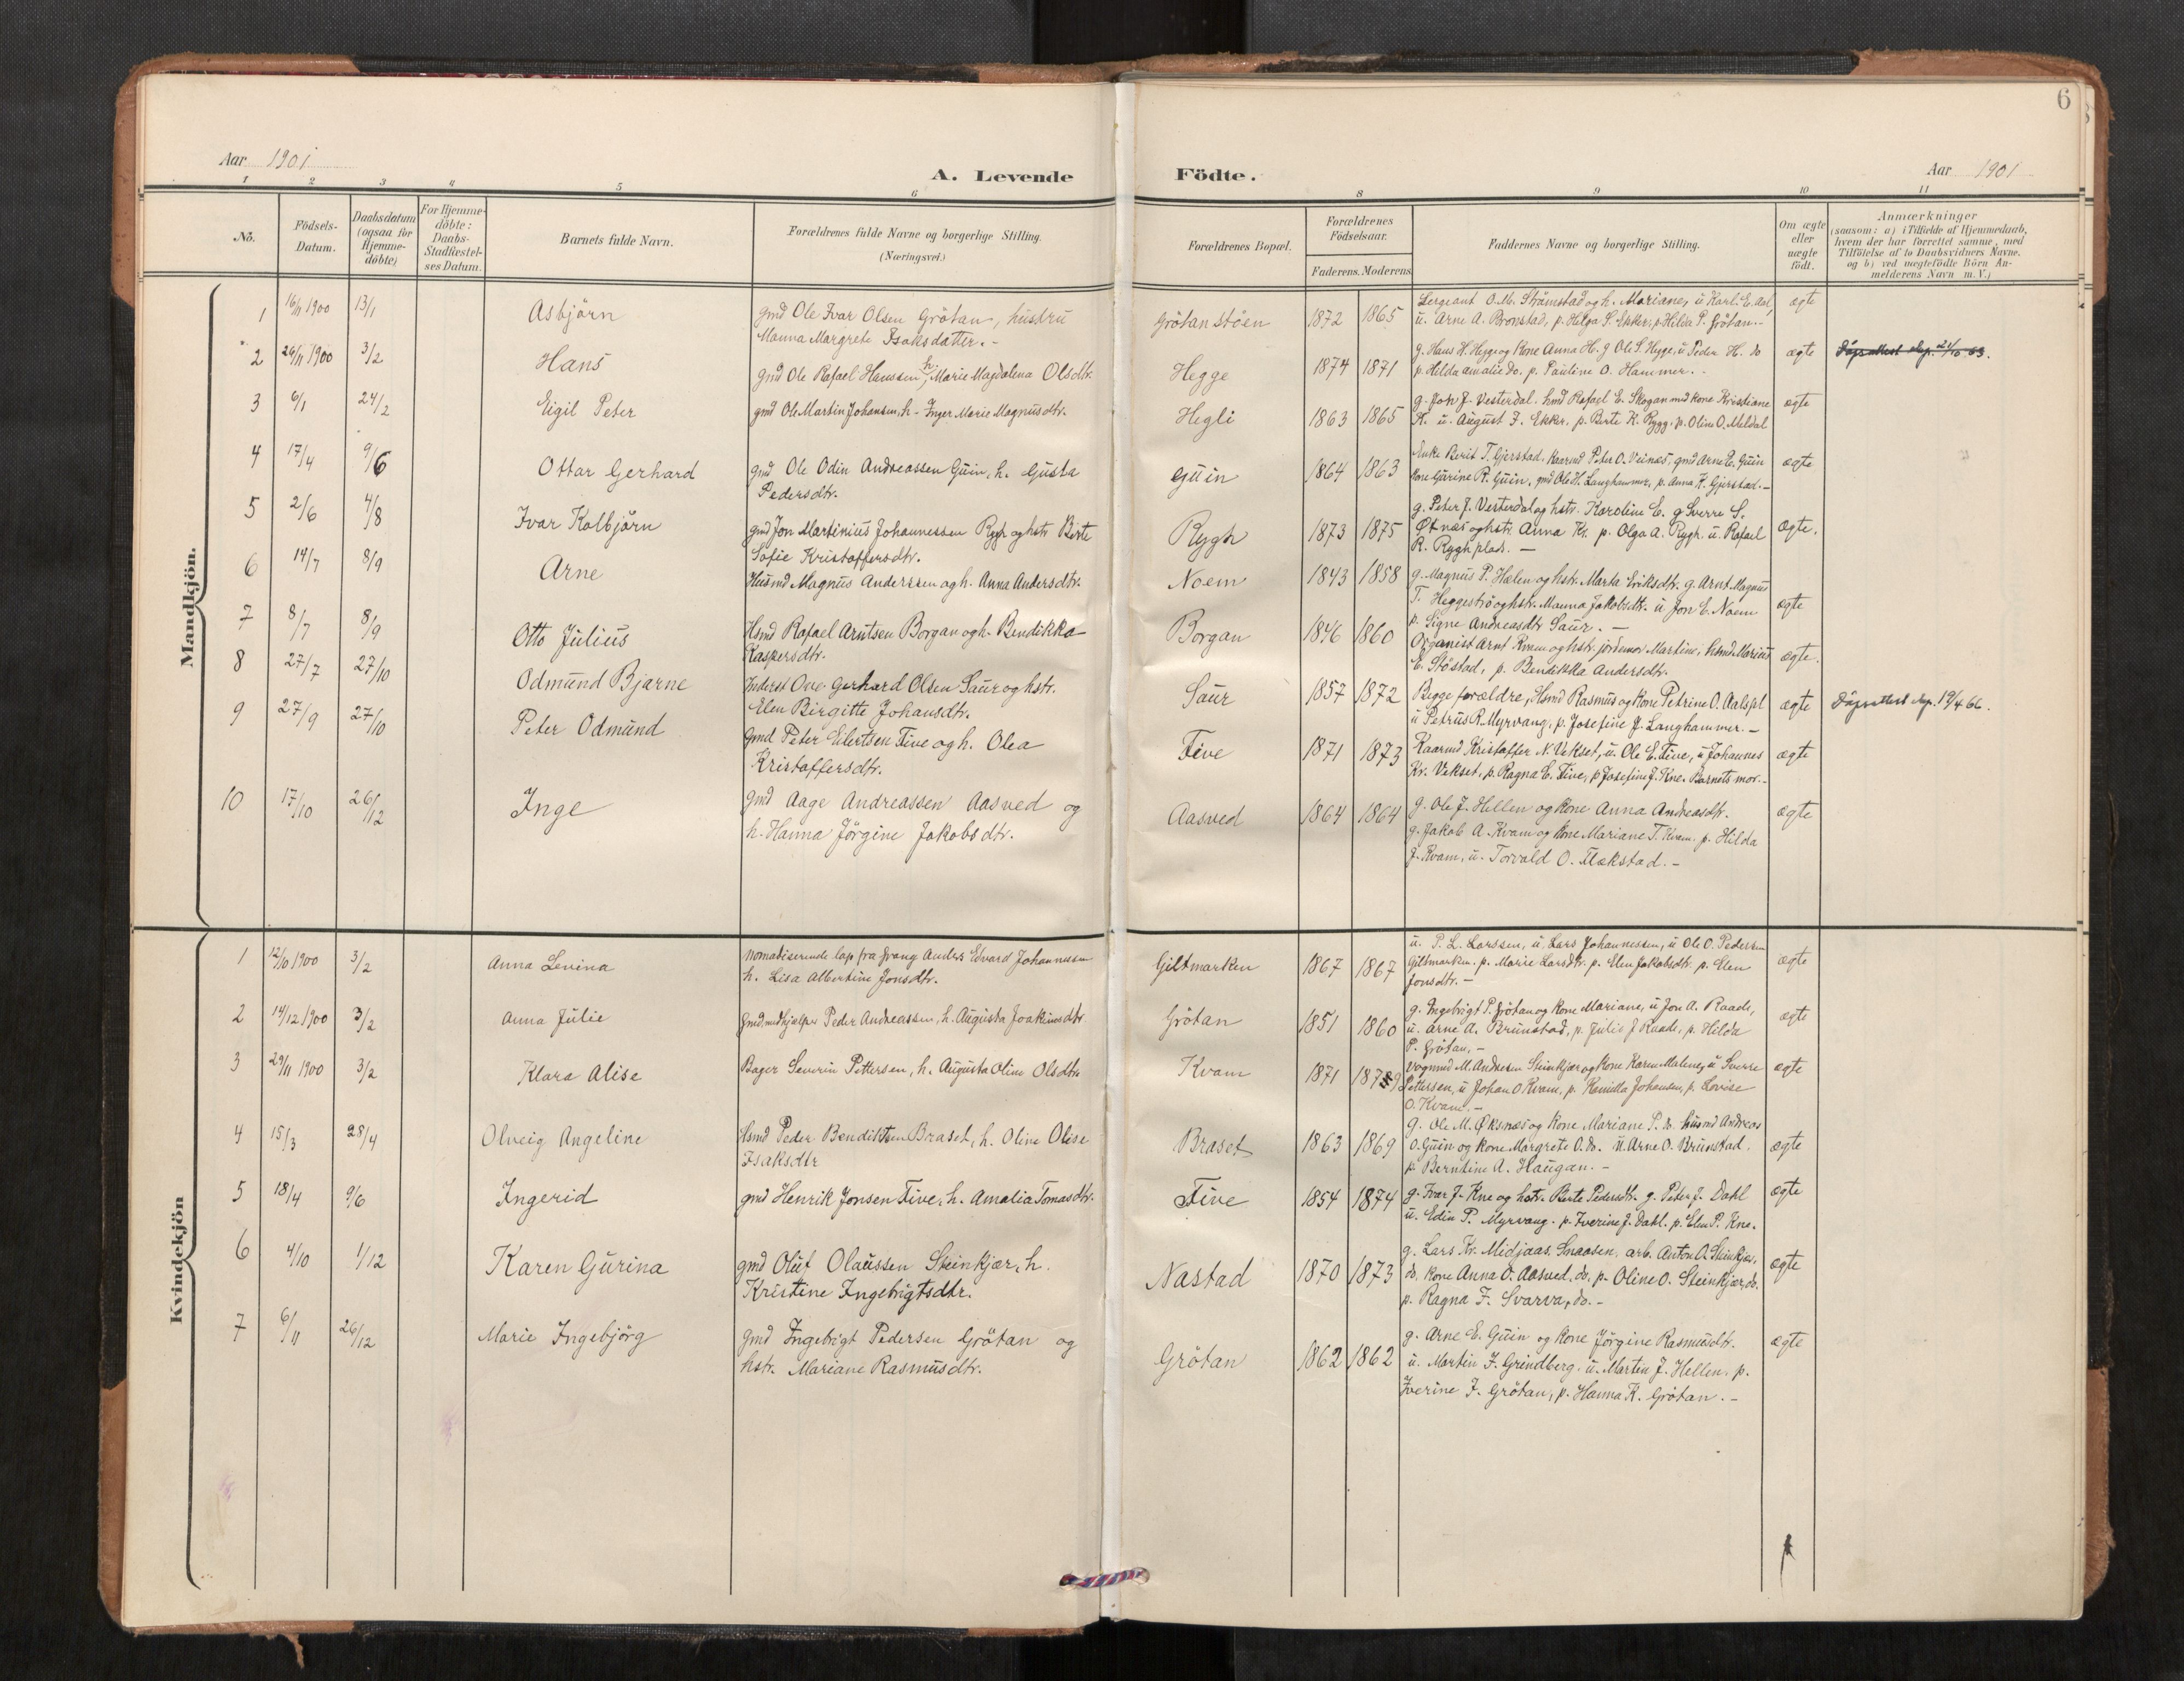 6
Aar 1901
A. Levende Födte.
Aar 1901
1 2 3 4 5 6 8 9 10 11
Nö.
Födsels-Datum.
Daabsdatum (ogsaa for Hjemme-döbte)
For Hjemme-döbte: Daabs-Stadfæstel-ses Datum.
Barnets fulde Navn.
Forældrenes fulde Navne og borgerlige Stilling.
(Næringsvei.)
Forældrenes Bopæl.
Forældrenes Födselsaar.
Faderens. Moderens.
Faddernes Navne og borgerlige Stilling.
Om ægte eller uægte födt.
Anmærkninger
(saasom: a) i Tilfælde af Hjemmedaab,
hvem der har forrettet samme, med
Tilföielse af to Daabsvidners Navne,
og b) ved uægtefödte Börn An-
melderens Navn m. V.)
Mandkjön.
1 16/11 1900 13/1 Asbjörn gmd Ole Ivar Olsen Grötan, hustru
Manna Margrete Isaksdatter.-
Grötanstöen 1872 1865 Sergeant O. M. Strömstad og h. Mariane, u Karl E. Aal, ægte
u. Arne A. Bronstad, p. Helga S. Ekker, p. Hilda P. Grötan.-
2 26/11 1900 3/2 Hans gmd Ole Rafael Hanssen, h. Marie Magdalena Olsdtr.
Hegge 1874 1871 g. Hans H. Hegge og Kone Anna H. g Ole S. Hegge, u Peder H. do ægte
p. Hilda Amalie do. p. Pauline O. Hammer.-
3 6/1 24/2 Eigil Peter gmd Ole Martin Johansen, h- Inger Marie Magnusdtr.
Hegli 1863 1865 g. Joh J. Vesterdal. hmd Rafael E. Skogan med kone Kristiane ægte
K. u. August J. Ekker, p. Berte K. Rygg. p. Oline O. Meldal
4 17/4 9/6 Ottar Gerhard gmd Ole Odin Andreassen Guin, h. Gusta
Pedersdtr.
Guin 1864 1863 Enke Berit T. Gjerstad. Kaarmd Peter O. Veines, gmd Arne E. Guin ægte
kone Gurine R. Guin, gmd Ole H. Langhammer, p. Anna K. Gjerstad.-
5 2/6 4/8 Ivar Kolbjörn gmd Jon Martinius Johannessen Rygh og hstr Berte
Sofie Kristoffersdtr.
Rygh 1873 1875 g. Peter J. Vesterdal og hstr. Karoline E. g Sverre S. ægte.
Øksnes og hstr. Anna Kr. p. Olga A. Rygh. u. Rafael
R. Rygh plads.-
6 14/7 8/9 Arne Husmd Magnus Anderssen og h. Anna Andersdtr.
Noem 1843 1858 g. Magnus P. Hælen og hstr. Marta Eriksdtr. g. Arnt Magnus ægte
T. Heggeströ og hstr. Manna Jakobsdtr. u Jon E. Noem
p. Signe Andreasdtr Saur.-
7 8/7 8/9 Otto Julius Hsmd Rafael Arntsen Borgan og h- Bendikka
Kaspersdtr.
Borgan 1846 1860 Organist Arnt Kvam og hstr. jordemor Martine, hsmd Marius ægte.
E. Stöstad, p. Bendikka Andersdtr.
8 27/7 27/10 Odmund Bjarne Inderst Ove Gerhard Olsen Saur og hstr.
Elen Birgitte Johansdtr.
Saur 1857 1872 Begge forældre, Hsmd Rasmus og Kone Petrine O. Aalspl ægte
u Petrus R. Myrvang, p. Josefine J. Langhammer.-
Dåpsattest Rep. 19/4 66.
9 27/9 27/10 Peter Odmund Gmd Peter Eilertsen Five og h. Olea
Kristoffersdtr.
Five 1871 1873 Kaarmd Kristoffer N. Vekset, u. Ole E. Five, u Johannes ægte
Kr. Vekset, p. Ragna E. Five, p Josefine J. Kne. Barnets mor.-
10 17/10 26/12 Inge gmd Aage Andreassen Aasved og
h. Hanna Jörgine Jakobsdtr.
Aasved 1864 1864 g. Ole J. Hellen og Kone Anna Andreasdtr. ægte
g. Jakob A. Kvam og Kone Mariane T. Kvam. p. Hilda
J. Kvam, u. Torvald O. Flekstad.-
Kvindekjön
1 12/10 1900 3/2 Anna Levina nomadiserende lap fra Frang Anders Edvard Johannessen
h. Lisa Albertine Jonsdtr.
Giltmarken 1867 1867 u. P. L. Larssen, u. Lars Johannessen, u Ole O. Pedersen ægte
Giltmarken. p. Marie Larsdtr. p. Elen Jakobsdtr. p. Elen
Jonsdtr.-
2 14/12 1900 3/2 Anna Julie Gmd, medhjelper Peder Andreassen, h. Augusta Joakimsdtr.
Grötan 1851 1860 g. Ingebrigt P. Grötan og kone Mariane, u Jon A. Raade, ægte
u. Arne A. Brunstad, p. Julie J Raade, p. Hilda
P. Grötan,-
3 29/11 1900 3/2 Klara Alise Bager Severin Pettersen, h. Augusta Oline Olsdtr
Kvam 1871 1879 Vognmd M. Andresen Steinkjær og Kone Karen Malene, u Sverre ægte
Pettersen, u Johan O Kvam, p. Kamilla Johansen, p. Lovise
O. Kvam.-
4 15/3 28/4 Olveig Angeline Hsmd Peder Bendiktsen Braset, h. Oline Olise
Isaksdtr
Braset 1863 1869 g. Ole M. Øksnæs og Kone Mariane P. do. husmd Andreas ægte
O. Guin og kone Margrete O. do. u. Arne O. Brunstad.
p. Berntine A. Haugan.-
5 18/4 9/6 Ingerid gmd Henrik Jonsen Five, h. Amalia Tomasdtr.
Five 1854 1874 g. Ivar J. Kne og hstr. Berte Pedersdtr. g. Peter J. Dahl ægte
u. Edin P. Myrvang. p. Iverine J. Dahl. p. Elen P. Kne.
6 4/10 1/12 Karen Gurina gmd Oluf Olaussen Steinkjær, h.
Kristine Ingebrigtsdtr.
Nastad 1870 1873 g. Lars Kr. Midjaas, Snaasen, arb. Anton O. Steinkjær, ægte
do. Kone Anna O. Aasved, do, p. Oline O. Steinkjær, do.
p. Ragna F. Svarva, do.-
7 6/11 26/12 Marie Ingebjörg Gmd Ingebrigt Pedersen Grötan og
hstr. Mariane Rasmusdtr.
Grötan 1862 1862 g. Arne E. Guin og Kone Jörgine Rasmusdtr. ægte
u. Martin J. Grindberg. u. Marten J. Hellen. p.
Iverine J. Grötan, p. Hanna K. Grötan.-